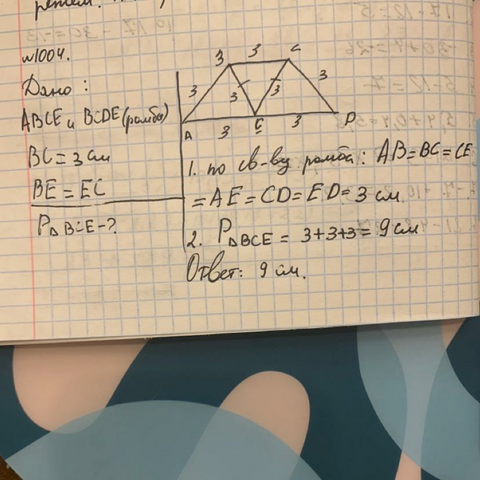 решен.
№1004.
Дано:
ABCE и BCDE (ромбы)
BC = 3 см
BE = EC
P△BCE - ?
3 3 C
3 3 3 3
A 3 E 3 D
1. по св-ву ромба: AB = BC = CE
= AE = CD = ED = 3 см.
2. P△BCE = 3+3+3 = 9 см
Ответ: 9 см.